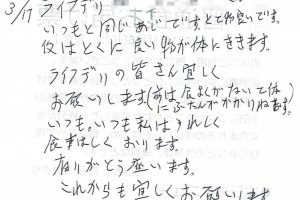 3/17 ライフデリ
いつもと同じあじです。とても良いです。
夜はとくに良い物が体にききます。
ライフデリの皆さん宜しく
お願いします(前は食
いつも、いつも私はうれしく
食事はしております。
有りがとう座います。
これからも宜しくお願いします